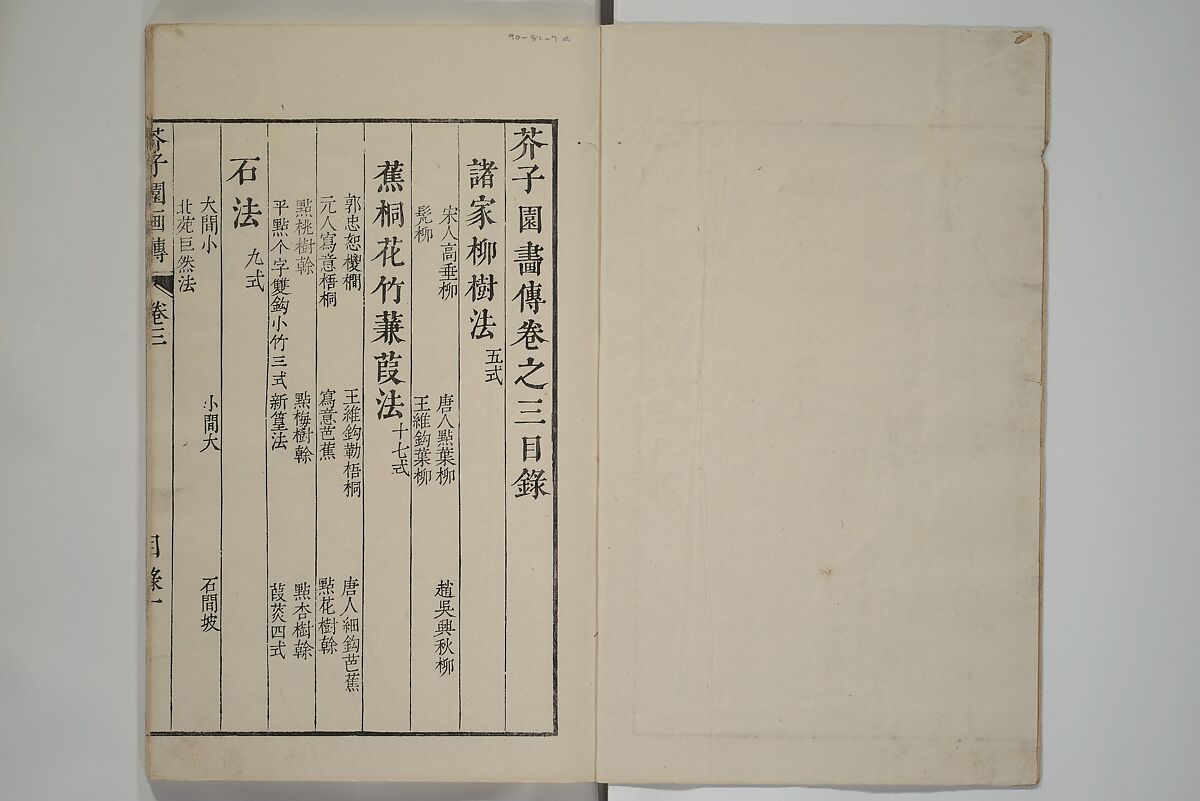 90-81-7a
芥子園畫傳卷之三目錄
諸家柳樹法 五式
宋人高垂柳 唐人點葉柳 趙吳興秋柳
髡柳 王維鈎葉柳
蕉桐花竹蒹葭法 十七式
郭忠恕椶櫚 王維鈎勒梧桐 唐人細鈎芭蕉
元人寫意梧桐 寫意芭蕉 點花樹幹
點桃樹幹 點梅樹幹 點杏樹幹
平點个字雙鈎小竹三式 新篁法 葭菼四式
石法 九式
大間小 小間大 石間坡
北苑巨然法
芥子園画傳 卷三 目錄 一